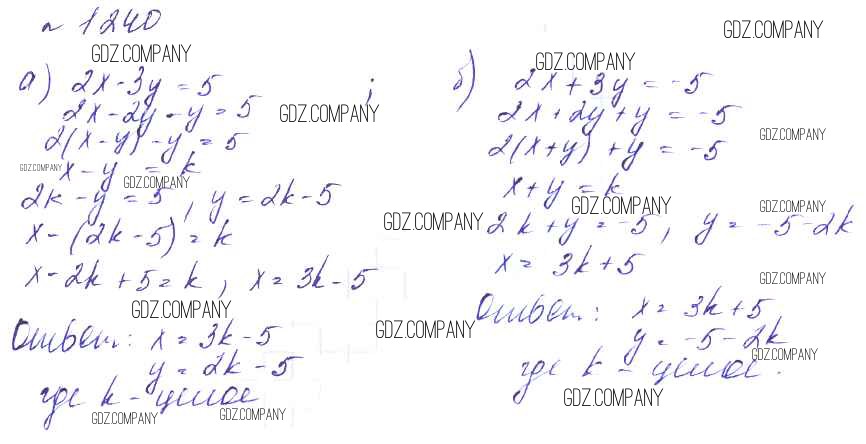 № 1240
GDZ.COMPANY
GDZ.COMPANY
а) 2x - 3y = 5 ;
2x - 2y - y = 5
GDZ.COMPANY
2(x - y) - y = 5
GDZ.COMPANY
x - y = k
GDZ.COMPANY
2k - y = 5, y = 2k - 5
x - (2k - 5) = k
x - 2k + 5 = k, x = 3k - 5
GDZ.COMPANY
Ответ: x = 3k - 5
y = 2k - 5
где k - целое
GDZ.COMPANY
GDZ.COMPANY
GDZ.COMPANY
GDZ.COMPANY
б) 2x + 3y = -5
2x + 2y + y = -5
GDZ.COMPANY
2(x + y) + y = -5
x + y = k
GDZ.COMPANY
GDZ.COMPANY
2k + y = -5, y = -5 - 2k
x = 3k + 5
GDZ.COMPANY
Ответ: x = 3k + 5
y = -5 - 2k
GDZ.COMPANY
где k - целое.
GDZ.COMPANY